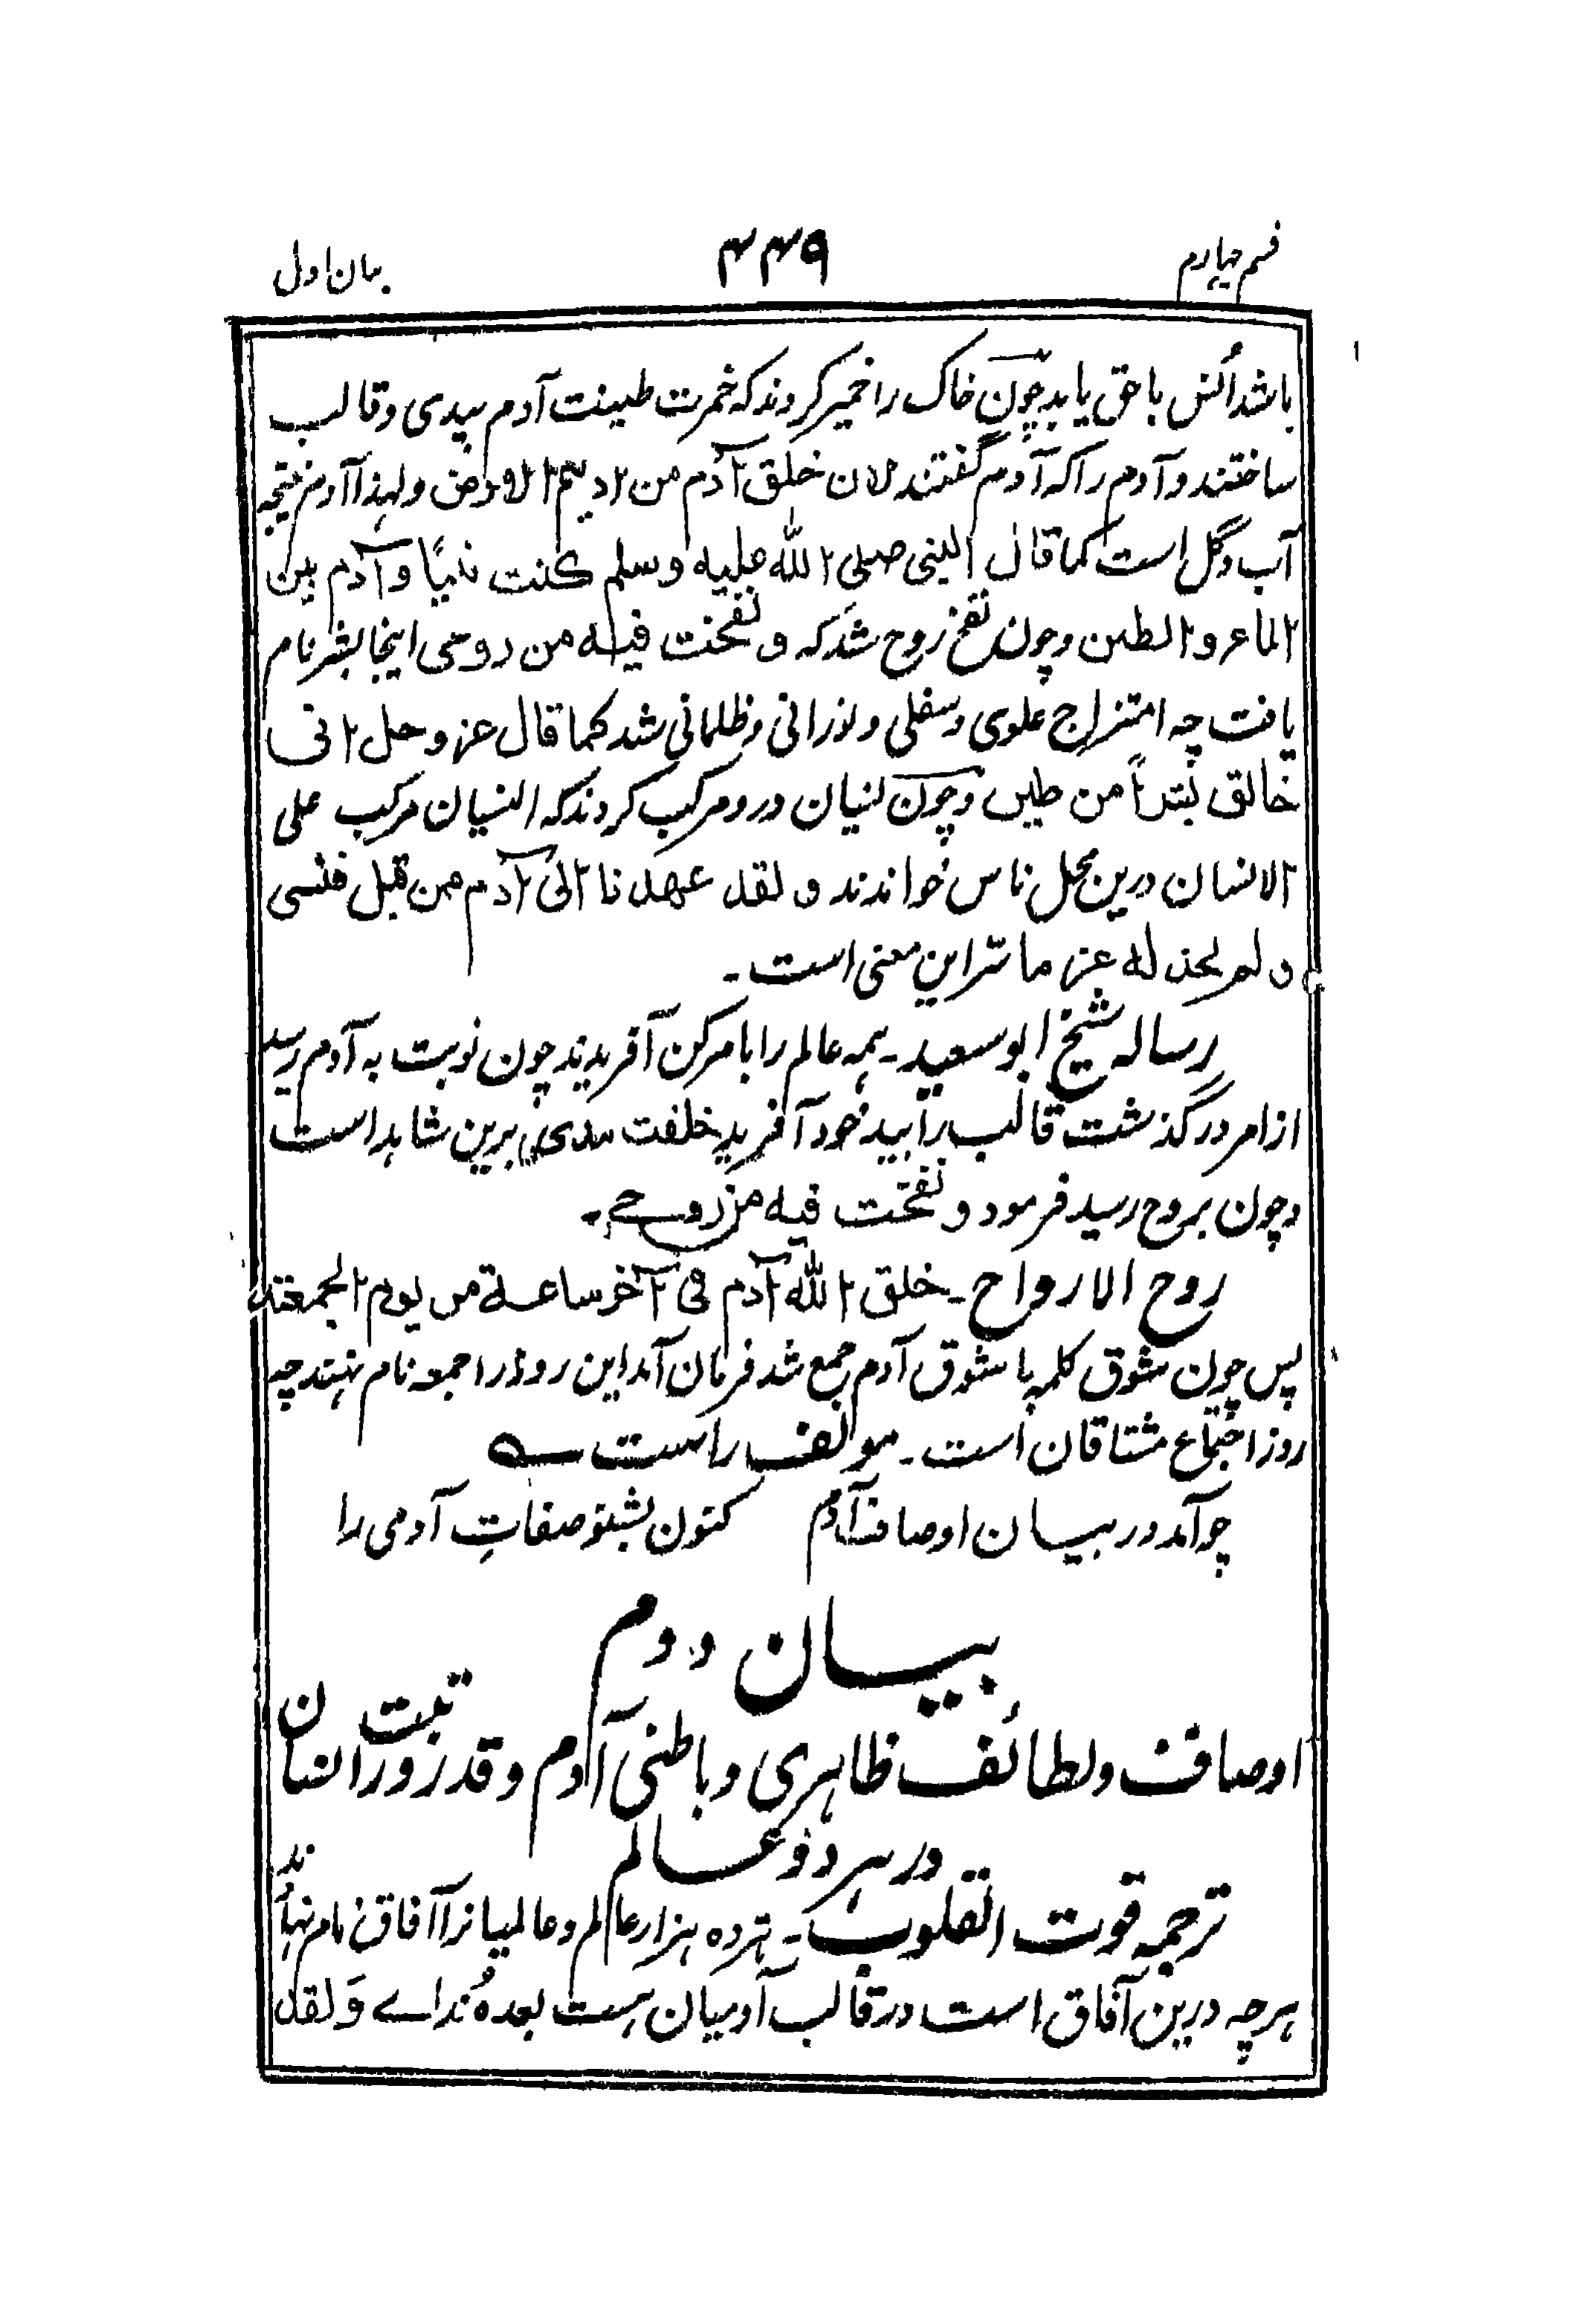 قسم چهارم
۴۴۹
بیان اول
باشد اُنس باحق یابد چون خاک را خمیر کردند که خمرت طینت آدم بیدی و قالب
ساختند و آدم را که آدم گفتند لان خلق آدم من ادیم الارض و لہٰذا آدم نتیجه
آب و گل است کما قال النبی صلی الله علیه وسلم کنت نبیًا و آدم بین
الماء و الطین و چون نفخ روح شد که و نفخت فیه من روحی اینجا بشر نام
یافت چه امتزاج علوی و سفلی و نورانی و ظلمانی شد کما قال عز و جل انی
خالق بشراً من طین و چون نسیان درو مرکب کردند که النسیان مرکب علی
الانسان درین محل ناس خواندند و لقد عهدنا الی آدم من قبل فنسی
و لم نجد له عزما سّر این معنی است۔
رساله شیخ ابو سعید۔ همه عالم را بامر کن آفریدند چون نوبت به آدم رسید
از امر در گذشت قالب را بید خود آفرید خلقت بیدی برین شاهد است
و چون بروح رسید فرمود و نفخت فیه من روحی۔
روح الارواح۔ خلق الله آدم فی آخر ساعة من یوم الجمعة
پس چون شوق کلمه با شوق آدم جمع شد فرمان آمد این روز را جمعه نام نهند چه
روز اجتماع مشتاقان است۔ مولف راست
چو آمد در بیان اوصاف آدم کنون بشنو صفاتِ آدمی را
بیان دوم
اوصاف و لطائف ظاهری و باطنی آدم و قدر و رتبت انسان
در هر دو عالم
ترجمه قوت القلوب۔ هژده هزار عالم و عالمیانرا آفاق نام نهاده‌اند
هر چه درین آفاق است در قالب آدمیان هست بعده ندائے وَ لقد